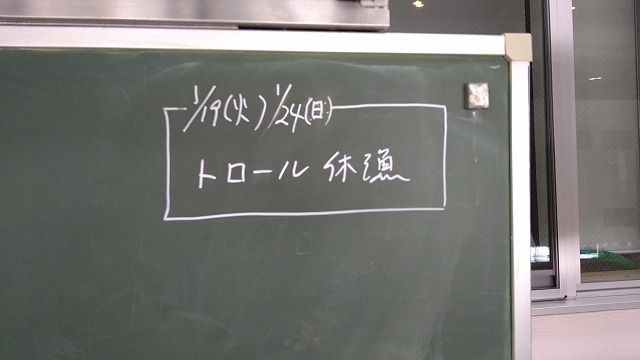 1/19(火) 1/24(日)
トロール 休漁